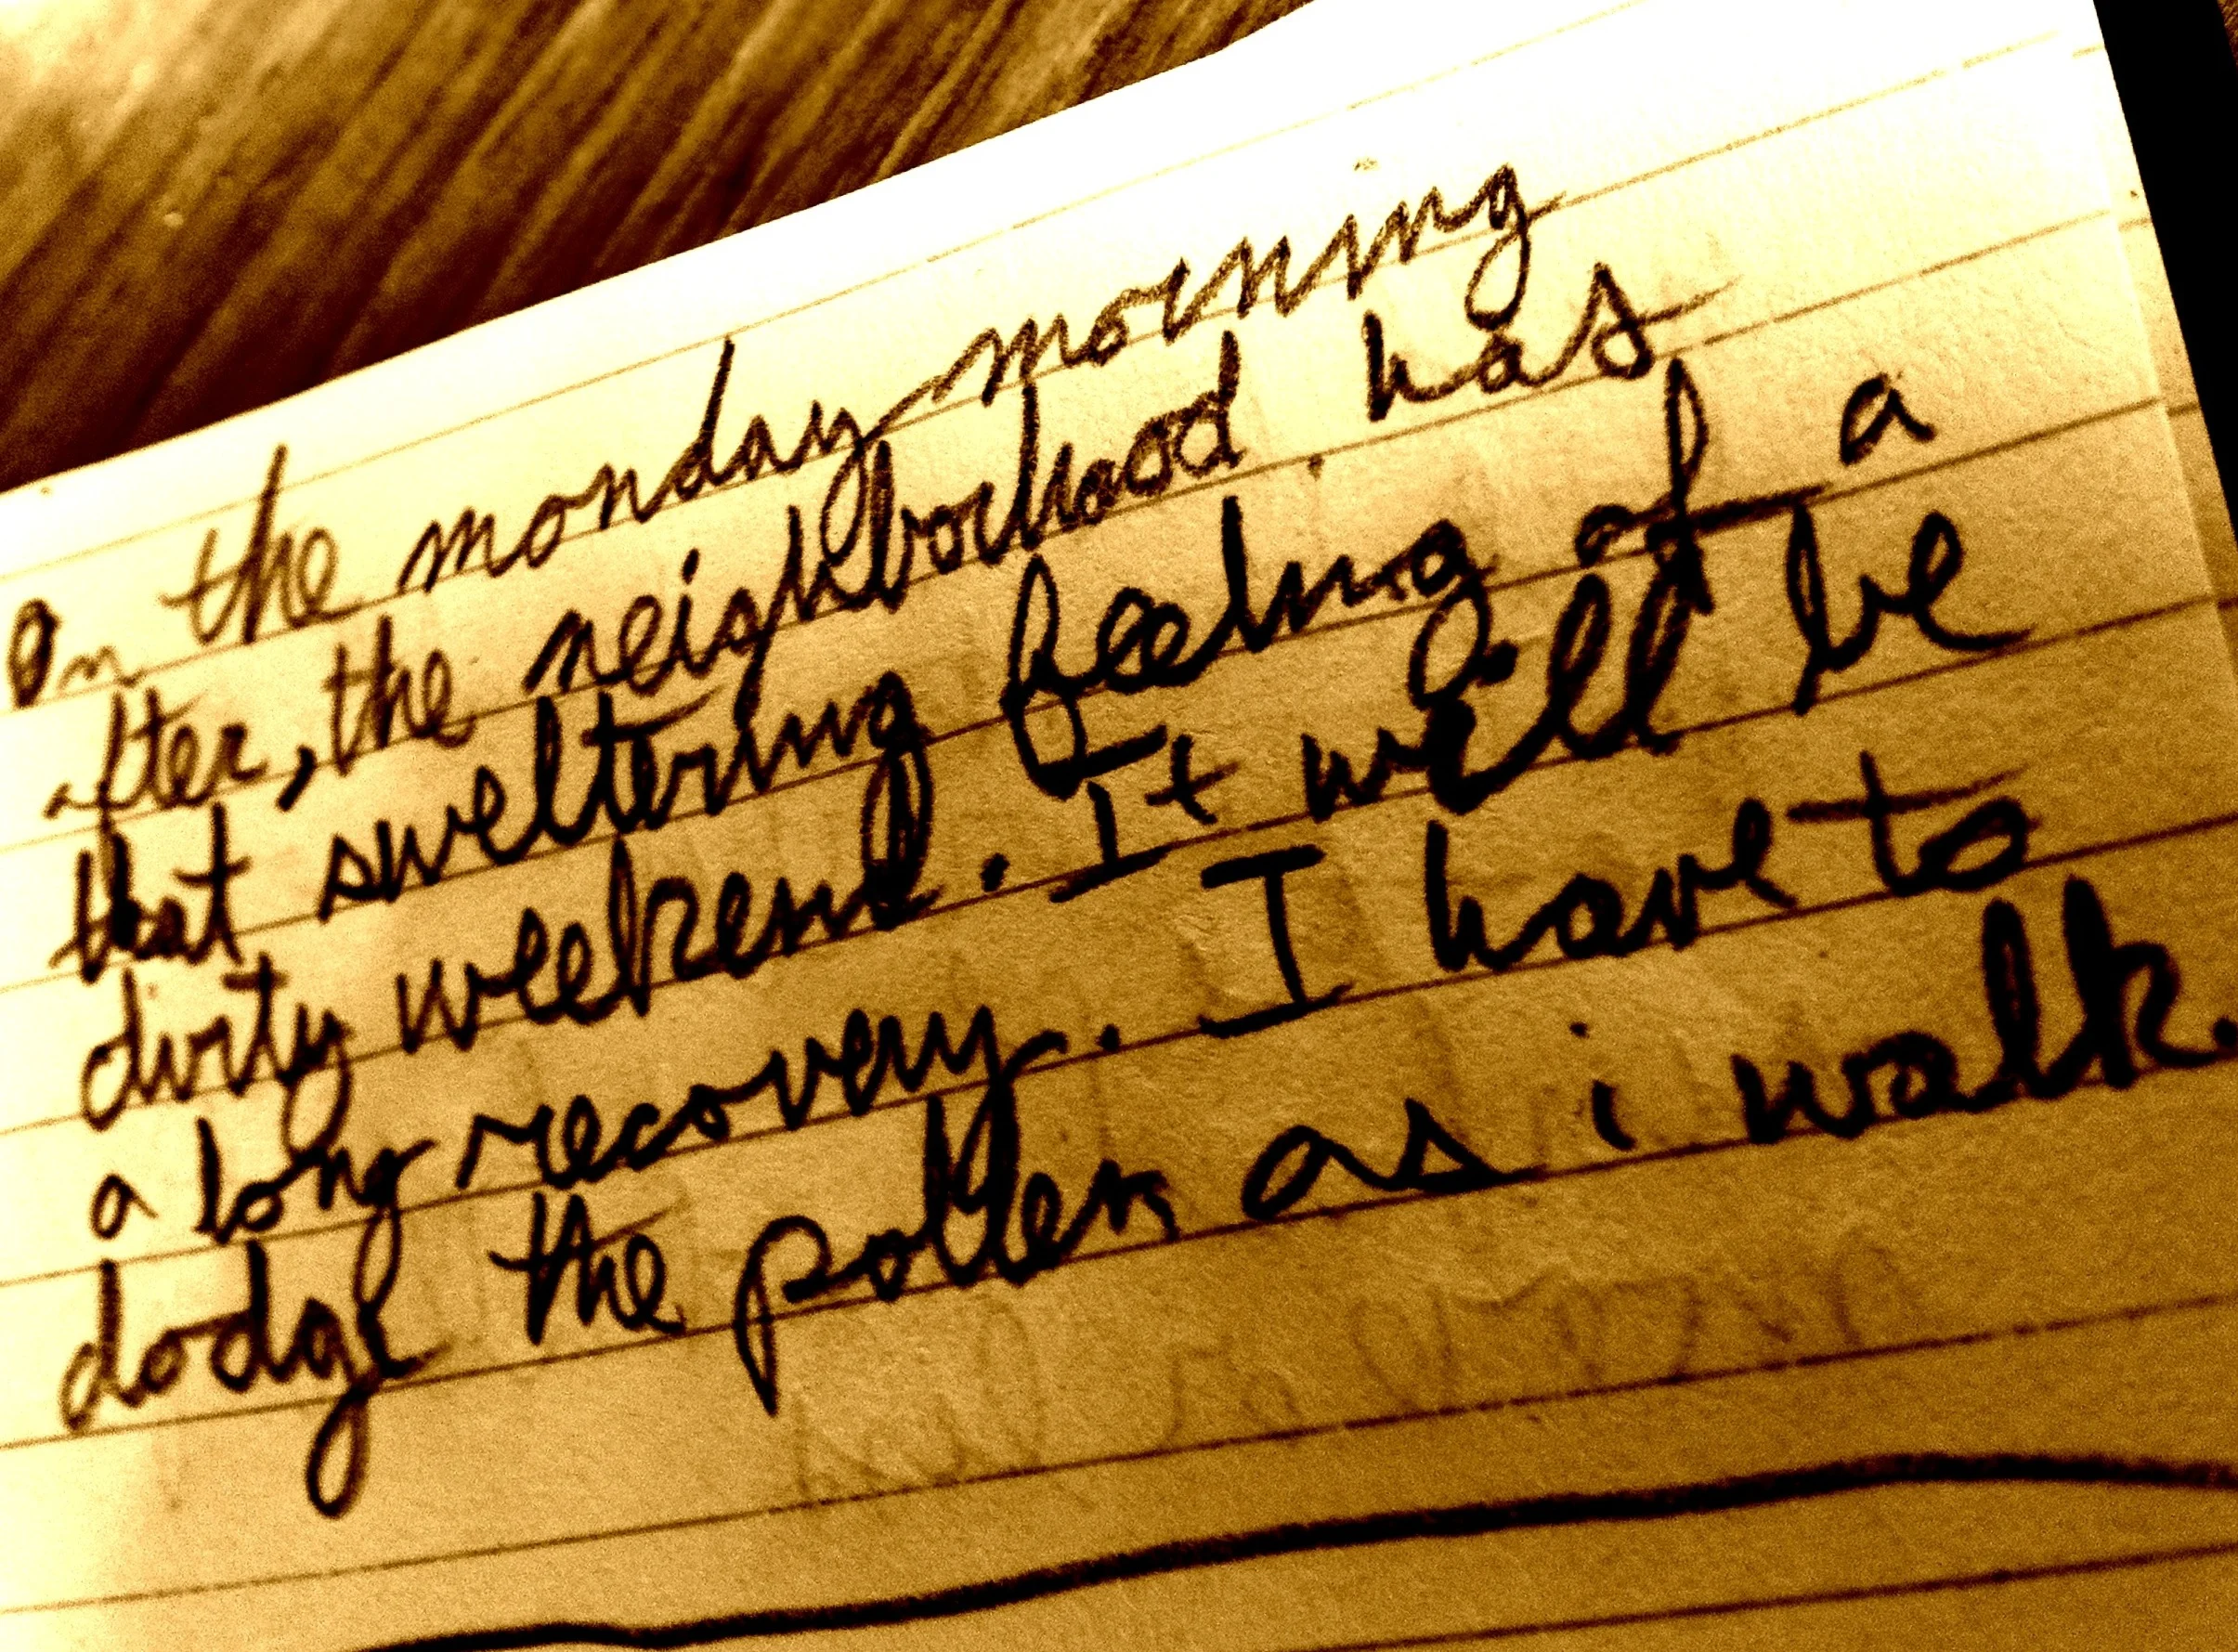 On the monday morning
after, the neighborhood has
that sweltering feeling of a
dirty weekend. It will be
a long recovery. I have to
dodge the pollen as i walk.